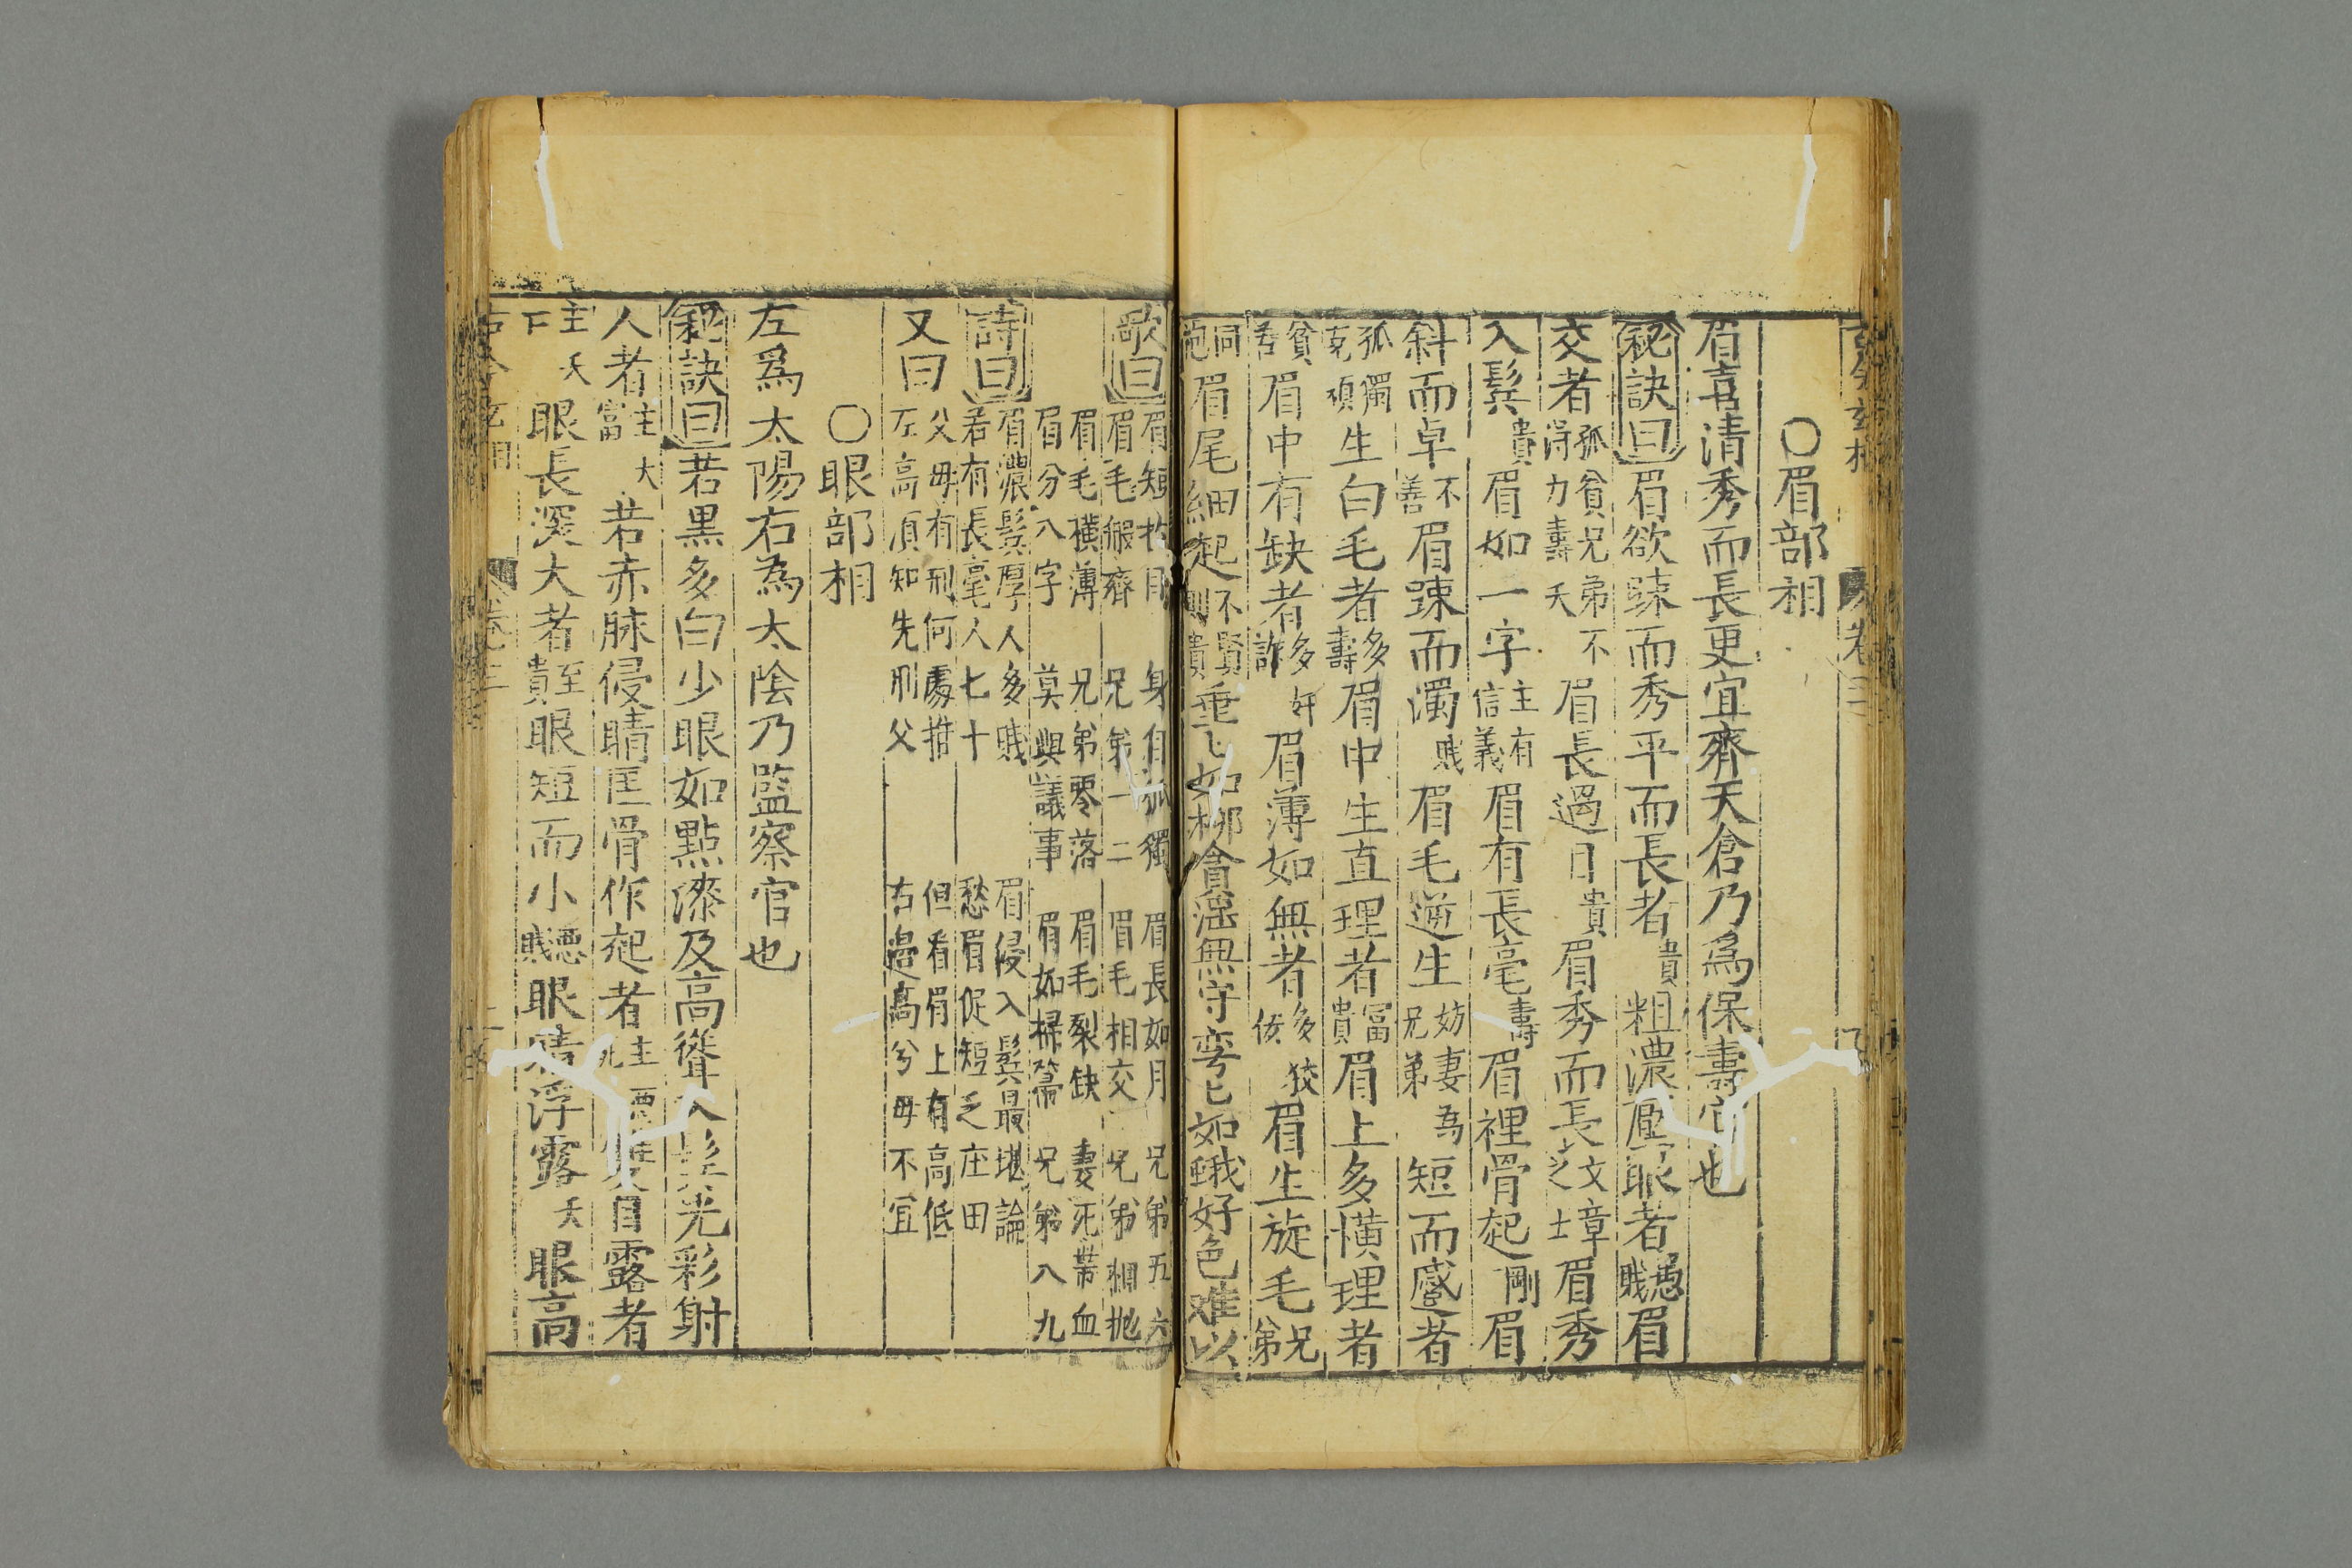 古今玄相 卷三
〇眉部相
眉喜清秀而長更宜齊天倉乃爲保壽官也
秘訣曰眉欲踈而秀平而長者貴粗濃壓眼者愚賤眉
交者孤貧兄弟不得力壽夭眉長過目貴眉秀而長文章之士眉秀
入鬂貴眉如一字主有信義眉有長毫壽眉裡骨起剛眉
斜而卓不善眉踈而濁賤眉毛逆生妨妻為兄弟短而蹙者
孤獨克頑生白毛者多壽眉中生直理者富貴眉上多横理者
貧苦眉中有缺者多奸詐眉薄如無者多狡佞眉生旋毛兄弟
同胞眉尾細起不賢則貴垂匕如柳貪淫無守弯匕如蛾好色难以
歌曰眉短於目 身自孤獨 眉長如月 兄弟五六
眉毛緞齊 兄弟一二 眉毛相交 兄弟相抛
眉毛橫薄 兄弟零落 眉毛裂缺 妻死帶血
眉分八字 莫與議事 眉如掃箒 兄弟八九
詩曰眉濃鬂厚人多賤 眉侵入鬂最堪論
若有長毫人七十 愁眉促短乏庄田
又曰父母有刑何處推 但看眉上有高低
左高須知先刑父 右邊高兮母不宜
〇眼部相
左爲太陽右為太陰乃監察官也
秘訣曰若黒多白少眼如點漆及高聳入鬂光彩射
人者主大富若赤脉侵睛匡骨作起者主惡死雙目露者
主夭下眼長深大者至貴眼短而小愚賤眼睛浮露夭眼高
古今玄相 卷三